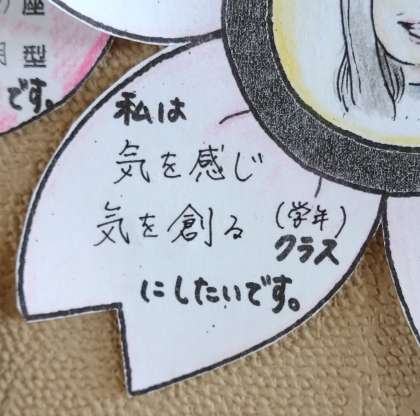 座
型
です。
私は
気を感じ
気を創る(学年)
クラス
にしたいです。